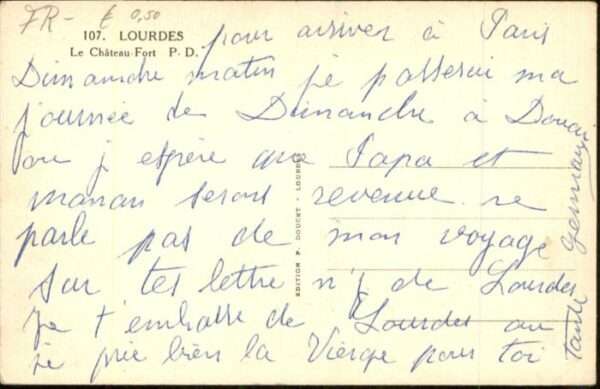 FR- € 0,50
107. LOURDES
Le Château-Fort P. D.
pour arriver à Paris
Dimandre matin je passerai ma
journée de Dimandre à Douai
ou j espère que Papa et
maman seront revenue ne
parle pas de mon voyage
sur tes lettre n'j de Lourdes
je t'embrasse de Lourdes ou
je prie bien la Vierge pour toi
tante Germaine
EDITION P. DOUCET - LOURDES